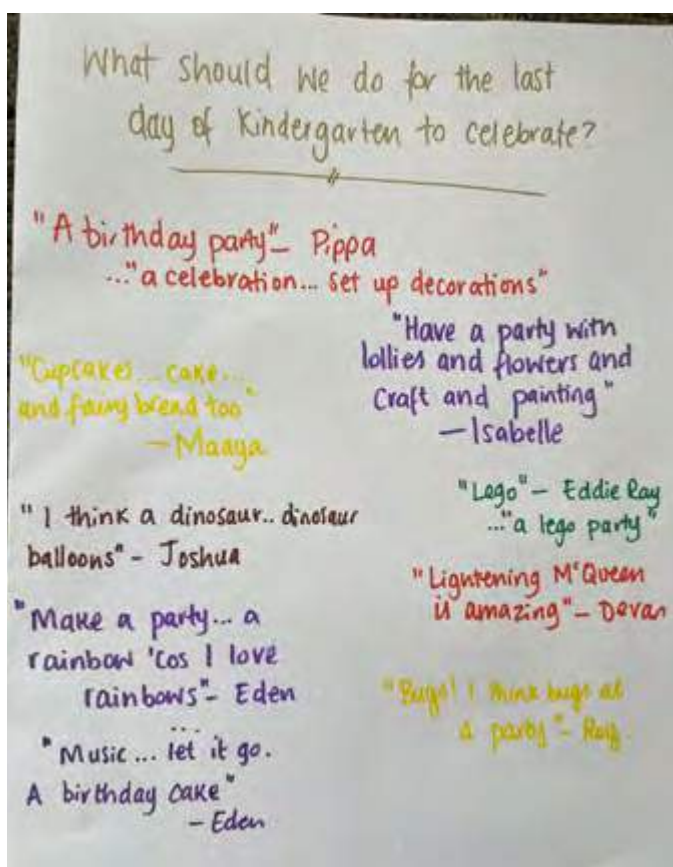 What should we do for the last
day of Kindergarten to celebrate?
"A birthday party" – Pippa
..."a celebration... set up decorations"
"Have a party with
lollies and flowers and
craft and painting"
– Isabelle
"Cupcakes... cake...
and fairy bread too"
– Maaya
"Lego" – Eddie Ray
..."a lego party"
"I think a dinosaur.. dinosaur
balloons" – Joshua
"Lightening McQueen
is amazing" – Devan
"Make a party... a
rainbow 'cos I love
rainbows" – Eden
...
"Music... let it go.
A birthday cake"
– Eden
"Bugs! I think bugs at
a party" –